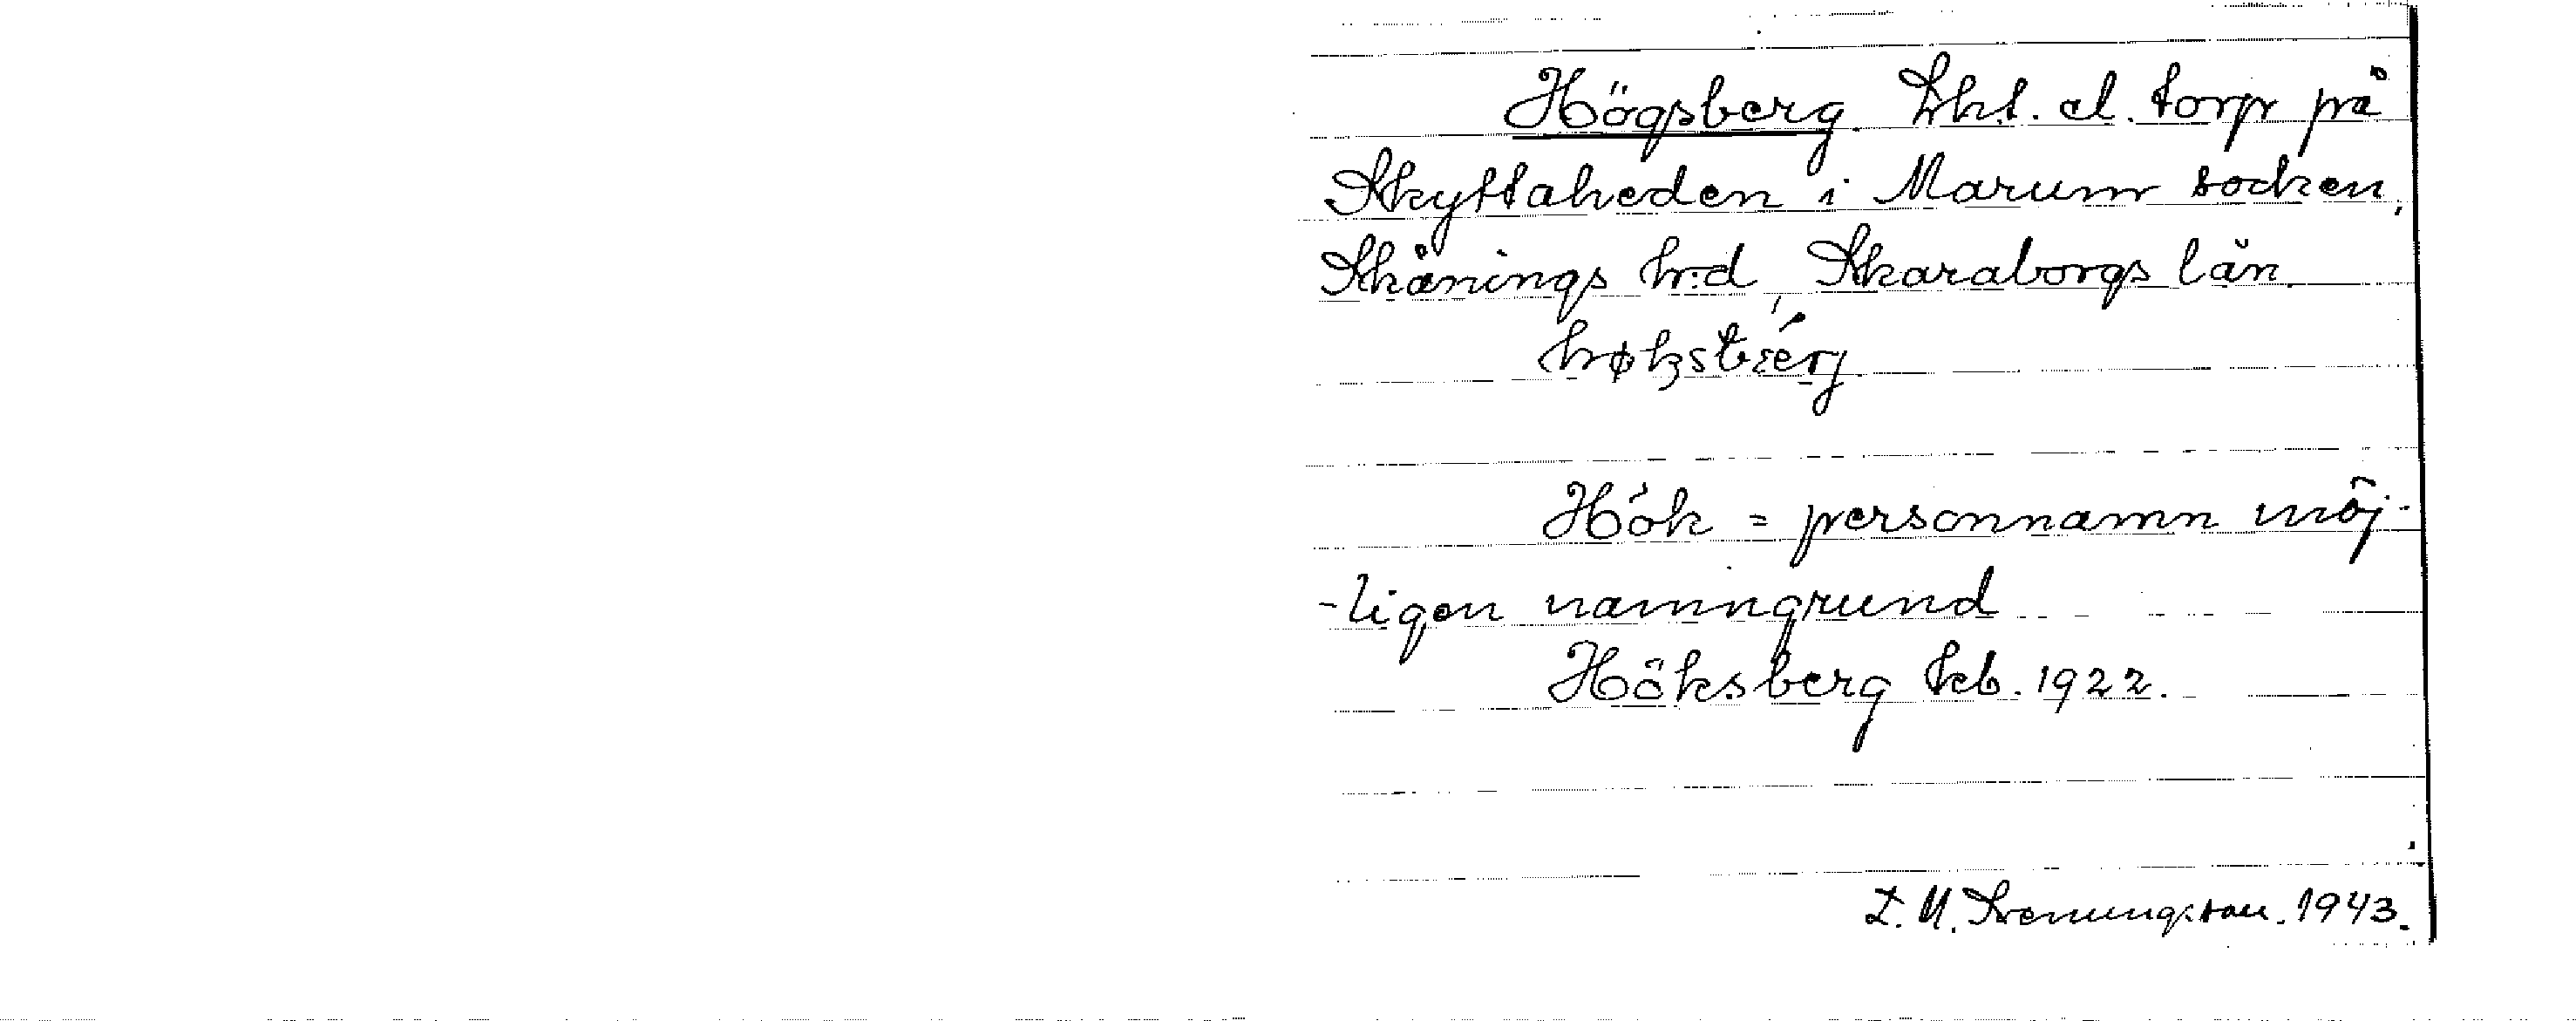 Högsberg Lht. el. torp på
Skyttaheden i Marum socken,
Skånings h:d, Skaraborgs län.
Hök = personnamn möj-
-ligen namngrund
Höksberg kb. 1922.
1943.